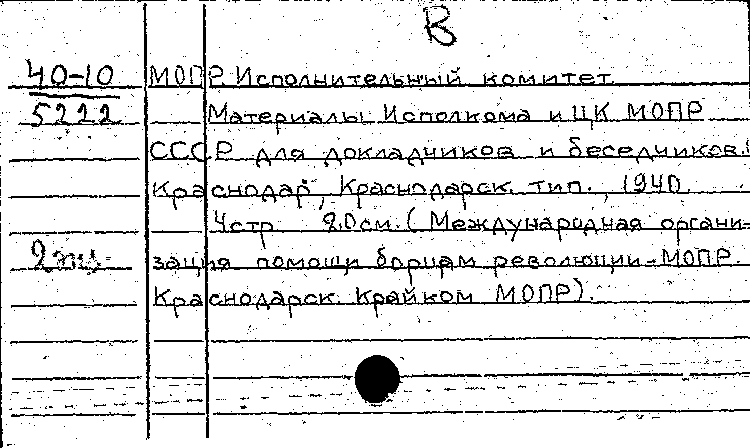 В
40-10 МОПР. Исполнительный комитет
5222 Материалы Исполкома и ЦК МОПР
СССР для докладчиков и беседчиков.
Краснодар, Краснодарск. тип., 1940.
4 стр 20см. (Международная органи-
зация помощи борцам революции-МОПР.
Краснодарск. Крайком МОПР).